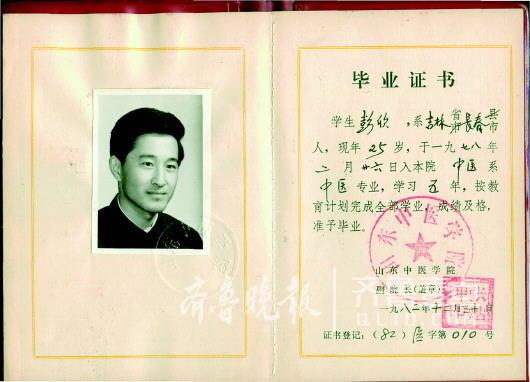 毕业证书
学生彭欣,系吉林省市长春县市
人，现年25岁，于一九七八年
二月廿六日入本院中医系
中医专业，学习五年，按教
育计划完成全部学业，成绩及格，
准予毕业。
山东中医学院
山东中医学院
副院长(盖章)
一九八二年十二月三十日
证书登记:(82)医字第010号
齐鲁晚报